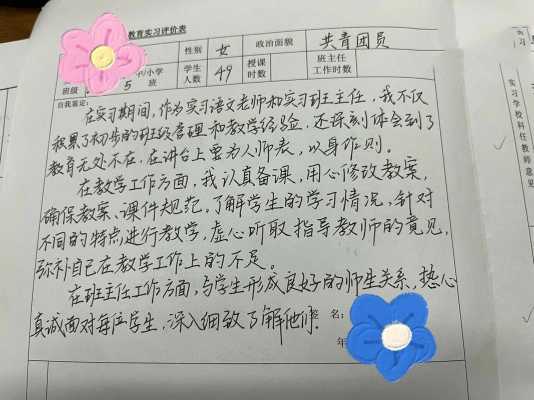 教育实习评价表
性别 女 政治面貌 共青团员
中/小学 学生人数 49 授课时数 班主任工作时数
班级 5 班
自我鉴定:
在实习期间,作为实习语文老师和实习班主任,我不仅
积累了初步的班级管理和教学经验,还深刻体会到了
教育无处不在,在讲台上要为人师表,以身作则。
在教学工作方面,我认真备课,用心修改教案,
确保教案、课件规范。了解学生的学习情况,针对
不同的特点进行教学,虚心听取指导教师的意见,
弥补自己在教学工作上的不足。
在班主任工作方面,与学生形成良好的师生关系,热心
真诚面对每位学生,深入细致了解他们.
名:
年
实习学校科任教师意见